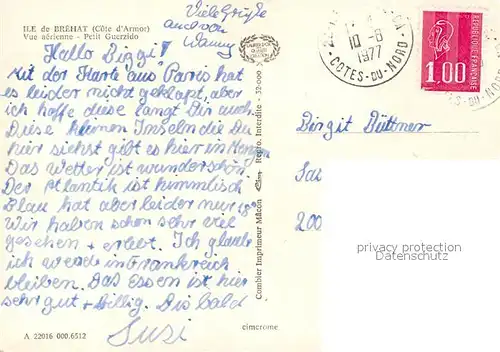 ILE de BRÉHAT (Côte d'Armor)
Vue aérienne - Petit Guerzido
Viele Grüße
auch von
Hallo Biggi!
Mit der Karte aus Paris hat
es leider nicht geklappt, aber
ich hoffe diese langt Dir auch.
Diese kleinen Inseln die Du
hier siehst gibt es hier in Mengen
Das Wetter ist wunderschön
Der Atlantik ist himmlisch
Blau hat aber leider nur 18°
Wir haben schon sehr viel
gesehen + erlebt. Ich glaube
ich werde in Frankreich
bleiben. Das Essen ist hier
sehr gut + billig. Bis bald
Susi
A 22016 000.6512
cimcrome
Combier Imprimeur Mâcon
Repro. Interdite - 52-000
10-8
1977
CÔTES-DU-NORD
1,00
REPUBLIQUE FRANÇAISE
CÔTES-DU-NORD
Birgit Büttner
200
privacy protection
Datenschutz